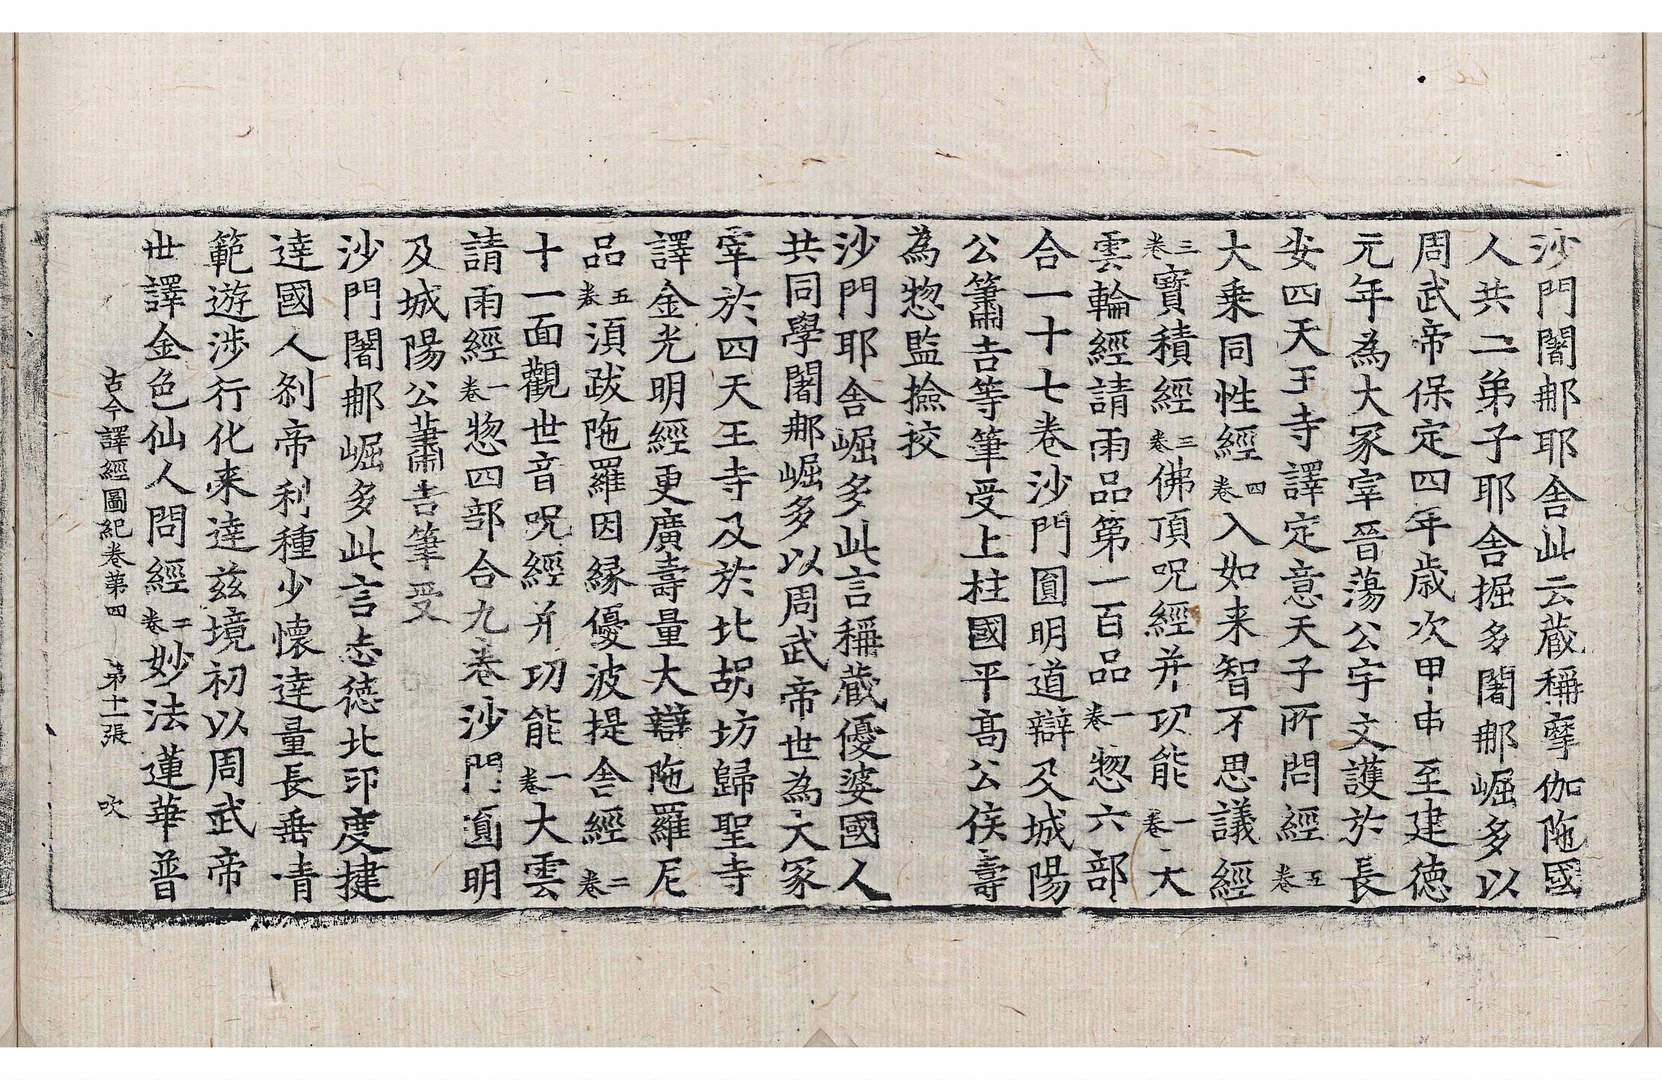 沙門闍那耶舍此云蔵稱摩伽陁國
人共二弟子耶舍掘多闍那崛多以
周武帝保定四年歳次甲申至建德
元年為大冢宰晉蕩公宇文護於長
安四天王寺譯定意天子所問經五卷
大乗同性經四卷入如来智不思議經
三卷寶積經三卷佛頂呪經并功能一卷大
雲輪經請雨品第一百品一卷惣六部
合一十七卷沙門圎明道辯及城陽
公蕭吉等筆受上柱國平髙公侯壽
為惣監撿挍
沙門耶舍崛多此言稱蔵優婆國人
共同學闍那崛多以周武帝世為大冢
宰於四天王寺及於北胡坊歸聖寺
譯金光明經更廣壽量大辯陁羅尼
品五卷湏跋陁羅因縁優波提舍經二卷
十一面觀世音呪經并功能一卷大雲
請雨經一卷惣四部合九卷沙門圎明
及城陽公蕭吉筆受
沙門闍那崛多此言志徳北印度揵
達國人剎帝利種少懷達量長垂清
範遊渉行化来達兹境初以周武帝
世譯金色仙人問經二卷妙法蓮華普
古今譯經圖紀卷第四 第十一張 吹